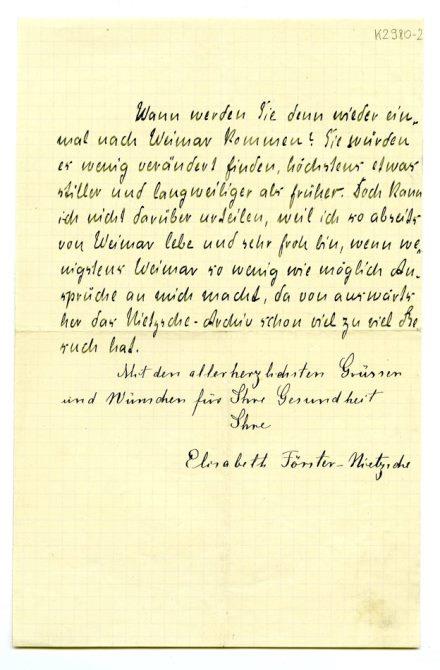 K2980-2
Wann werden Sie denn wieder ein„
mal nach Weimar kommen? Sie würden
es wenig verändert finden, höchstens etwas
stiller und langweiliger als früher. Doch kann
ich nicht darüber urteilen, weil ich so abseits
von Weimar lebe und sehr froh bin, wenn we„
nigstens Weimar so wenig wie möglich An„
sprüche an mich macht, da von auswärts
her das Nietzsche-Archiv schon viel zu viel Be
such hat.
Mit den allerherzlichsten Grüssen
und Wünschen für Ihre Gesundheit
Ihre
Elisabeth Förster-Nietzsche